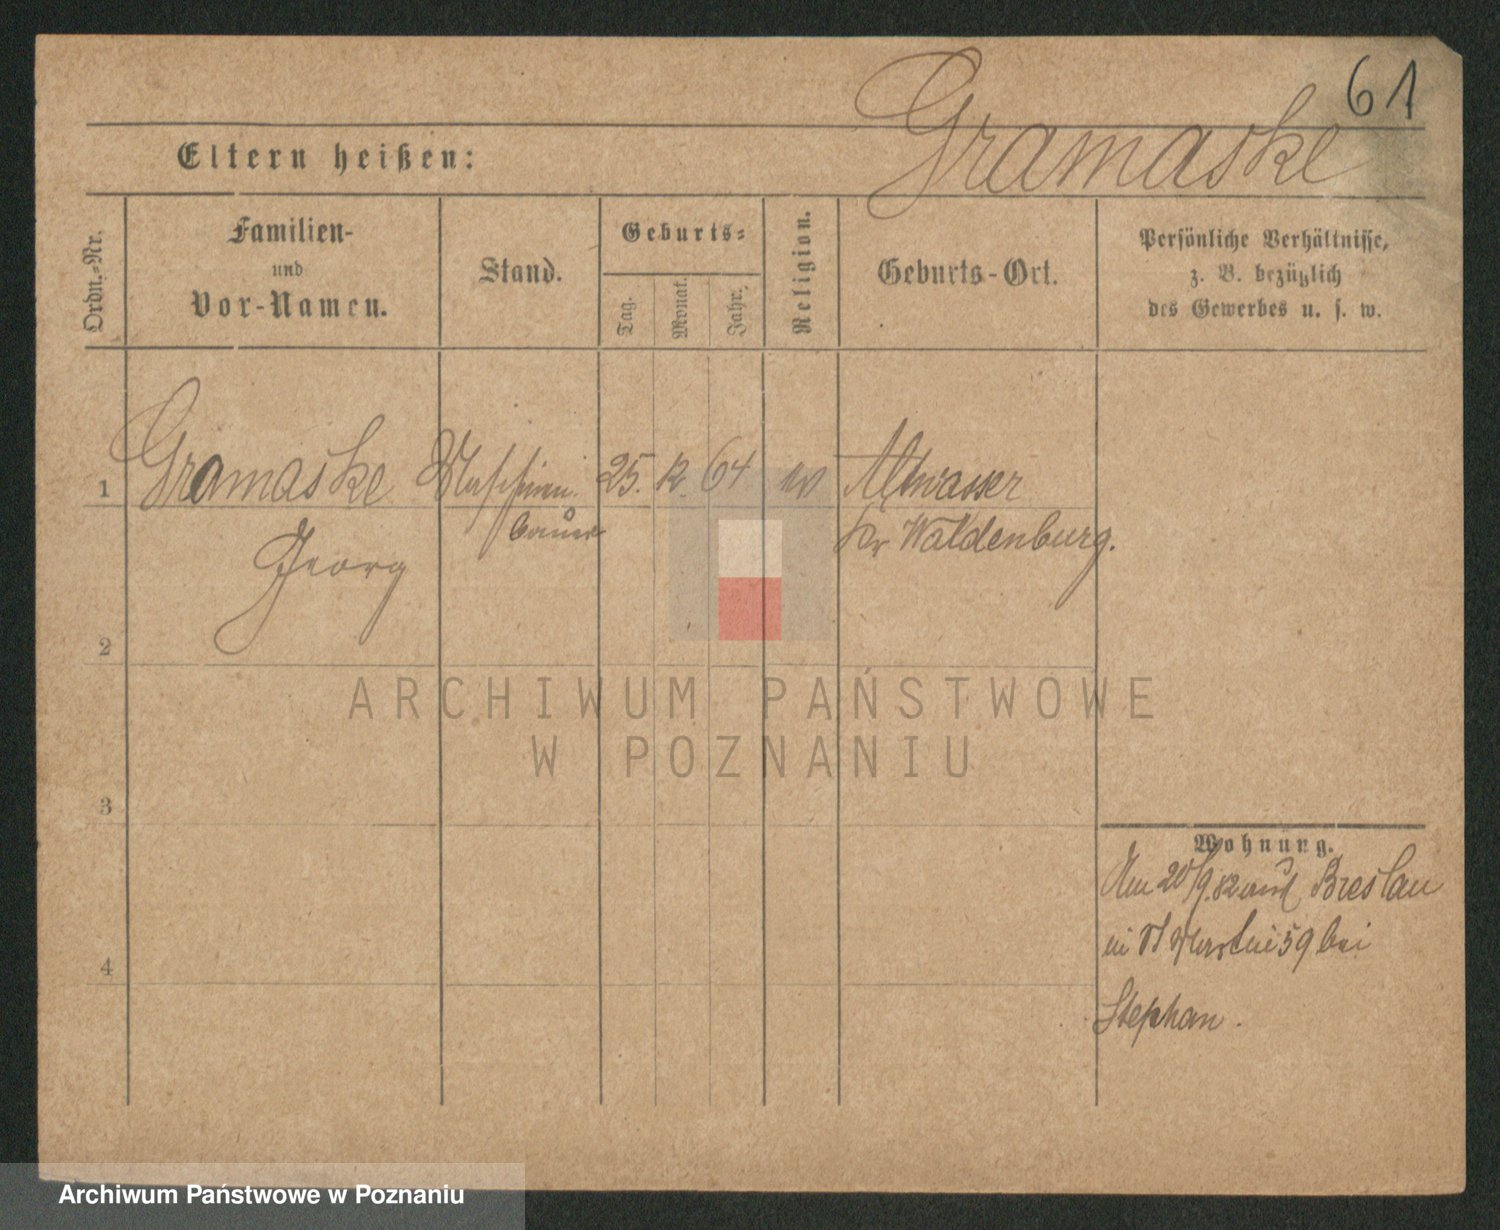 61
Gramaske
Eltern heißen:
Ordn.-Nr.
Familien-
und
Vor-Namen.
Stand.
Geburts-
Tag.
Monat.
Jahr.
Religion.
Geburts-Ort.
Persönliche Verhältnisse,
z. B. bezüglich
des Gewerbes u. s. w.
1 Gramaske Maschinen 25. 12. 64 ev Altwasser
Georg bauer Kr Waldenburg.
2
3
4
Wohnung.
Am 20/9.82 aus Breslau
in St Martin 59 bei
Stephan.
ARCHIWUM PAŃSTWOWE
W POZNANIU
Archiwum Państwowe w Poznaniu